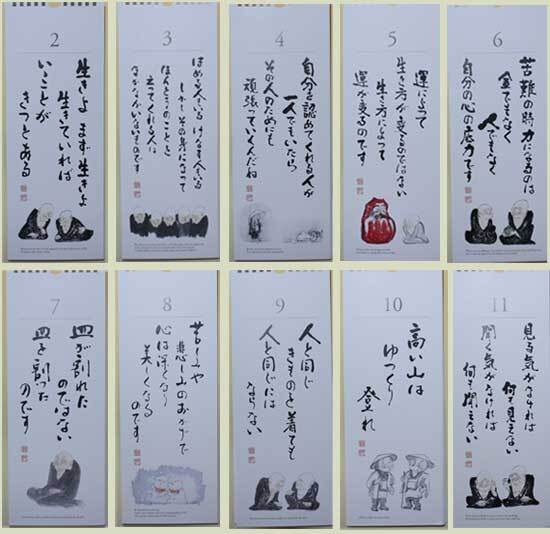 2
生きよ まず生きよ
生きていれば
いいことが
きっとある
3
ほめる人もいる けなす人もいる
しかし その身になって
ほんとうのことを
言ってくれる人は
なかなかいないものです
4
自分を認めてくれる人が
一人でもいたら
その人のためにも
頑張っていくんだね
5
運によって
生き方が変るのではない
生き方によって
運が変るのです
6
苦難の時力になるのは
金でもなく
人でもなく
自分の心の底力です
7
皿が割れた
のではない
皿を割った
のです
8
苦しみや
悲しみのおかげで
心は深くなり
美しくなる
のです
9
人と同じ
きものを着ても
人と同じには
ならない
10
高い山は
ゆっくり
登れ
11
見る気がなければ
何も見えない
聞く気がなければ
何も聞えない